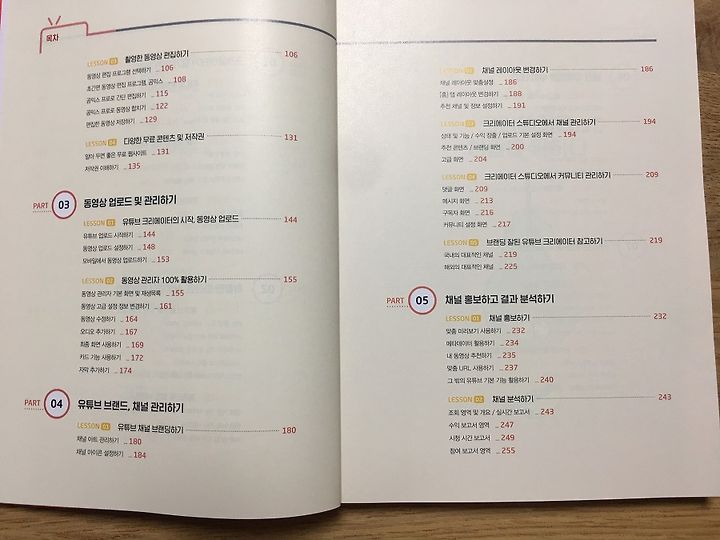 목차
LESSON 03 촬영한 동영상 편집하기 106
동영상 편집 프로그램 선택하기 _ 106
초간편 동영상 편집 프로그램, 곰믹스 _ 108
곰믹스 프로로 간단 편집하기 _ 115
곰믹스 프로로 동영상 합치기 _ 122
편집한 동영상 저장하기 _ 129
LESSON 04 다양한 무료 콘텐츠 및 저작권 131
알아 두면 좋은 무료 웹사이트 _ 131
저작권 이해하기 _ 135
PART 03 동영상 업로드 및 관리하기
LESSON 01 유튜브 크리에이터의 시작, 동영상 업로드 144
유튜브 업로드 시작하기 _ 144
동영상 업로드 설정하기 _ 148
모바일에서 동영상 업로드하기 _ 153
LESSON 02 동영상 관리자 100% 활용하기 155
동영상 관리자 기본 화면 및 재생목록 _ 155
동영상 고급 설정 정보 변경하기 _ 161
동영상 수정하기 _ 164
오디오 추가하기 _ 167
최종 화면 사용하기 _ 169
카드 기능 사용하기 _ 172
자막 추가하기 _ 174
PART 04 유튜브 브랜드, 채널 관리하기
LESSON 01 유튜브 채널 브랜딩하기 180
채널 아트 관리하기 _ 180
채널 아이콘 설정하기 _ 184
LESSON 02 채널 레이아웃 변경하기 186
채널 레이아웃 맞춤설정 _ 186
[홈] 탭 레이아웃 변경하기 _ 188
추천 채널 및 정보 설정하기 _ 191
LESSON 03 크리에이터 스튜디오에서 채널 관리하기 194
상태 및 기능 / 수익 창출 / 업로드 기본 설정 화면 _ 194
추천 콘텐츠 / 브랜딩 화면 _ 200
고급 화면 _ 204
LESSON 04 크리에이터 스튜디오에서 커뮤니티 관리하기 209
댓글 화면 _ 209
메시지 화면 _ 213
구독자 화면 _ 216
커뮤니티 설정 화면 _ 217
LESSON 05 브랜딩 잘된 유튜브 크리에이터 참고하기 219
국내의 대표적인 채널 _ 219
해외의 대표적인 채널 _ 225
PART 05 채널 홍보하고 결과 분석하기
LESSON 01 채널 홍보하기 232
맞춤 미리보기 사용하기 _ 232
메타데이터 활용하기 _ 234
내 동영상 추천하기 _ 235
맞춤 URL 사용하기 _ 237
그 밖의 유튜브 기본 기능 활용하기 _ 240
LESSON 02 채널 분석하기 243
조회 영역 및 개요 / 실시간 보고서 _ 243
수익 보고서 영역 _ 247
시청 시간 보고서 _ 249
참여 보고서 영역 _ 255